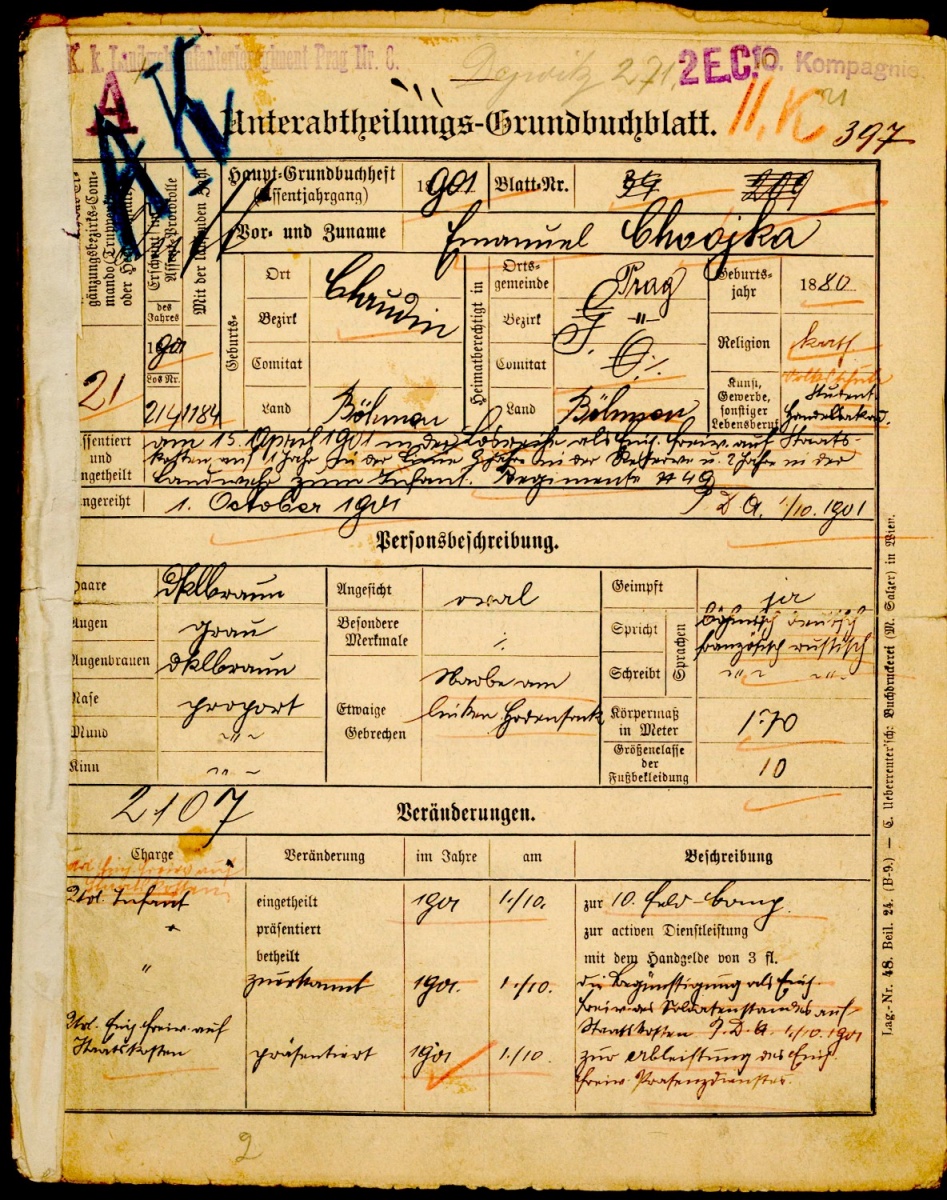 K. k. Landwehrinfanterieregiment Prag Nr. 8.
2EC. 10. Kompagnie.
A
AK
II. K
Unterabtheilungs-Grundbuchblatt.
397
Haupt-Grundbuchheft (Assentjahrgang) 1901 Blatt-Nr.
Vor- und Zuname Emanuel Chvojka
Mit der laufenden
des Jahres 1901
21
Los Nr.
214/1184
Geburts-
Ort Chrudim
Bezirk
Comitat
Land Böhmen
Heimatberechtigt in
Ortsgemeinde Prag
Bezirk "
Comitat
Land Böhmen
Geburtsjahr 1880
Religion kath
Kunst, Gewerbe, sonstiger Lebensberuf
Student
Handelsakad.
ssentiert und ngetheilt
am 15. April 1901 in der Losreihe als Einj. freiw. auf Staats-
kosten auf 1 Jahr in der Linie 9 Jahre in der Reserve u. 2 Jahre in der
Landwehr zum Infant. Regimente # 49
ngereiht 1. October 1901 P. D. A. 1/10. 1901
Personsbeschreibung.
Haare dklbraun
Augen grau
Augenbrauen dklbraun
Nase proport
Mund " "
Kinn " "
Angesicht oval
Besondere Merkmale ;
Etwaige Gebrechen
Narbe am
linken Hodensack
Geimpft ja
Spricht
Schreibt
Sprachen
böhmisch deutsch
französisch russisch
" " " "
Körpermaß in Meter 1·70
Größenclasse der Fußbekleidung 10
2107
Veränderungen.
Charge Veränderung im Jahre am Beschreibung
Infant eingetheilt 1901 1./10. zur 10. Feld-Comp.
präsentiert zur activen Dienstleistung
betheilt mit dem Handgelde von 3 fl.
" zuerkannt 1901. 1./10. die Begünstigung als Einj.
freiw. des Soldatenstandes auf
Staatskosten P. D. A. 1./10. 1901
Einj. freiw. auf
Staatskosten präsentiert 1901 1./10. zur Ableistung des Einj.
freiw. Präsenzdienstes.
Lag.-Nr. 48. Beil. 24. (B-9.) — C. Ueberreuter'sche Buchdruckerei (M. Salzer) in Wien.
2